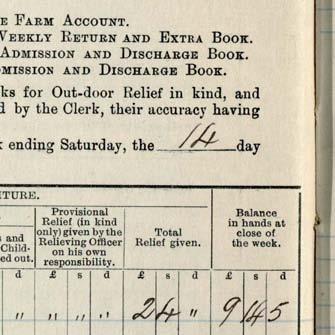 E FARM ACCOUNT.
WEEKLY RETURN AND EXTRA BOOK.
ADMISSION AND DISCHARGE BOOK.
MISSION AND DISCHARGE BOOK.
ks for Out-door Relief in kind, and
d by the Clerk, their accuracy having
k ending Saturday, the 14 day
ITURE.
s and Child- ed out.
Provisional Relief (in kind only) given by the Relieving Officer on his own responsibility.
Total Relief given.
Balance in hands at close of the week.
d £ s d £ s d £ s d
" " " " 2 4 " 9 14 5